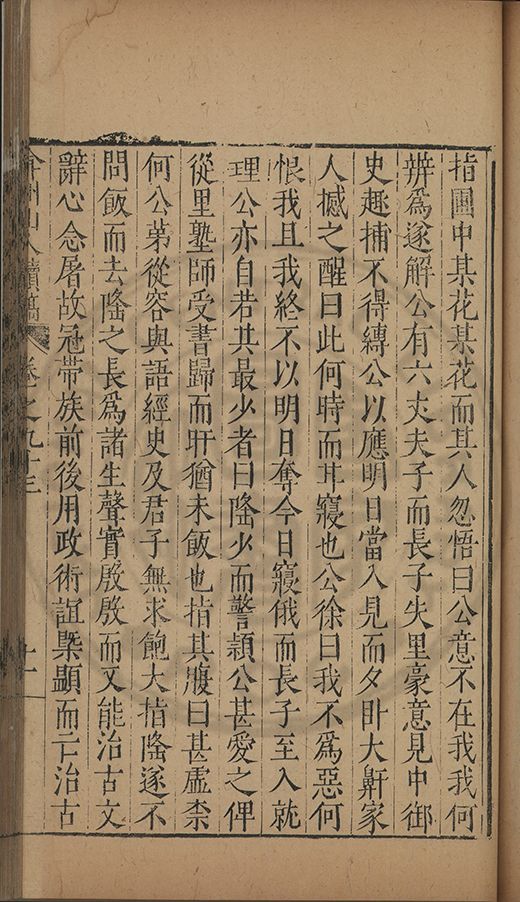 指圃中某花某花而其人忽悟曰公意不在我我何
辨為遂解公有六丈夫子而長子失里豪意見中御
史趣捕不得縛公以應明日當入見而夕臥大鼾家
人撼之醒曰此何時而耳寢也公徐曰我不為惡何
恨我且我終不以明日奪今日寢俄而長子至入就
理公亦自若其最少者曰隆少而警穎公甚愛之俾
從里塾師受書歸而旰猶未飯也指其腹曰甚虛柰
何公第從容與語經史及君子無求飽大指隆遂不
問飯而去隆之長為諸生聲實殷殷而又能治古文
辭心念屠故冠帶族前後用政術誼槩顯而亡治古
弇州山人續稿 卷之九十三 十一